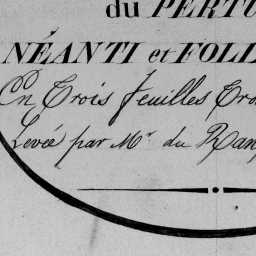 du PERTU
NÉANTI et FOLI
En Trois feuilles Cro
Levée par Mr. du Ran